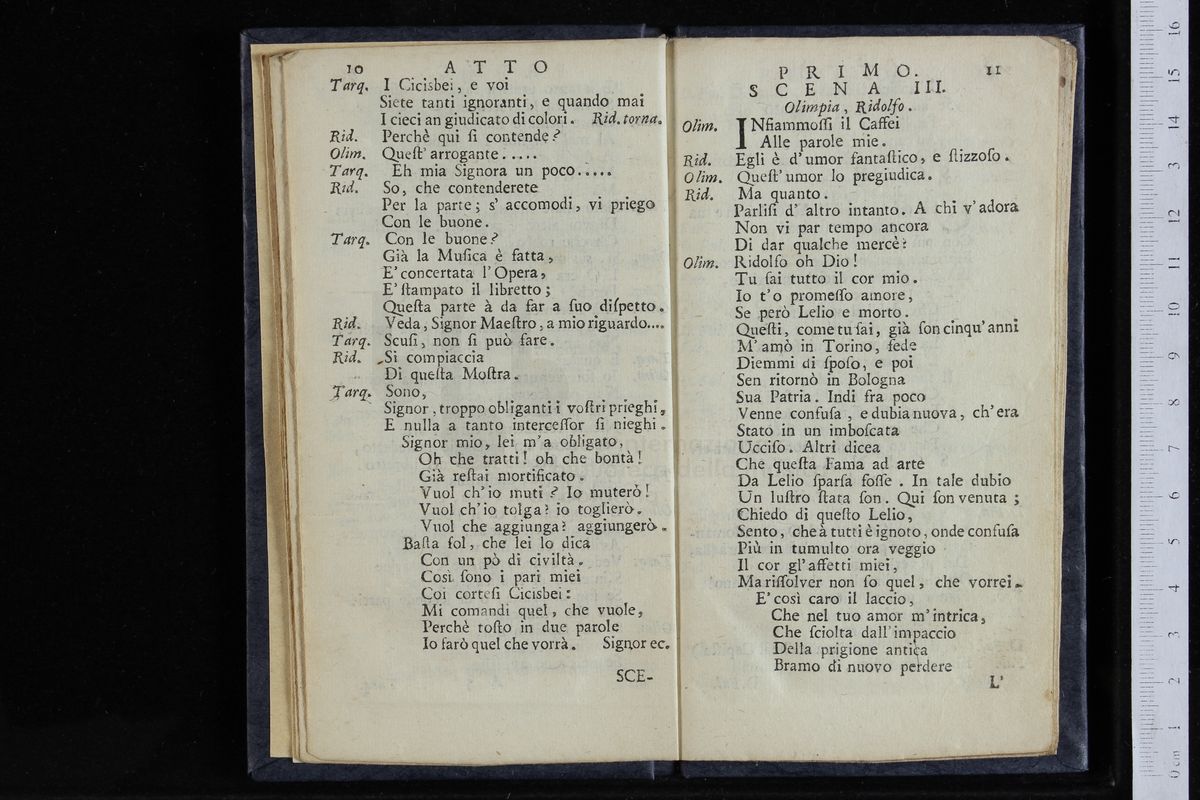 10 ATTO
Tarq. I Cicisbei, e voi
Siete tanti ignoranti, e quando mai
I cieci an giudicato di colori. Rid. torna.
Rid. Perchè qui ſi contende?
Olim. Queſt' arrogante.....
Tarq. Eh mia Signora un poco.....
Rid. So, che contenderete
Per la parte; s' accomodi, vi priego
Con le buone.
Tarq. Con le buone?
Già la Muſica è fatta,
E' concertata l'Opera,
E' ſtampato il libretto;
Queſta parte à da far a ſuo diſpetto.
Rid. Veda, Signor Maeſtro, a mio riguardo....
Tarq. Scuſi, non ſi può fare.
Rid. Si compiaccia
Di queſta Moſtra.
Tarq. Sono,
Signor, troppo obliganti i voſtri prieghi,
E nulla a tanto interceſſor ſi nieghi.
Signor mio, lei m'a obligato,
Oh che tratti! oh che bontà!
Già reſtai mortificato.
Vuol ch'io muti? Io muterò!
Vuol ch'io tolga? io toglierò.
Vuol che aggiunga? aggiungerò.
Baſta ſol, che lei lo dica
Con un pò di civiltà.
Così ſono i pari miei
Coi corteſi Cicisbei:
Mi comandi quel, che vuole,
Perchè toſto in due parole
Io farò quel che vorrà. Signor ec.
SCE-
PRIMO. 11
SCENA III.
Olimpia, Ridolfo.
Olim. INfiammoſſi il Caffei
Alle parole mie.
Rid. Egli è d'umor fantaſtico, e ſtizzoſo.
Olim. Queſt'umor lo pregiudica.
Rid. Ma quanto.
Parliſi d' altro intanto. A chi v'adora
Non vi par tempo ancora
Di dar qualche mercè?
Olim. Ridolfo oh Dio!
Tu ſai tutto il cor mio.
Io t'o promeſſo amore,
Se però Lelio e morto.
Queſti, come tu ſai, già ſon cinqu'anni
M'amò in Torino, fede
Diemmi di ſpoſo, e poi
Sen ritornò in Bologna
Sua Patria. Indi fra poco
Venne confuſa, e dubia nuova, ch'era
Stato in un imboſcata
Ucciſo. Altri dicea
Che queſta Fama ad arte
Da Lelio ſparſa foſſe. In tale dubio
Un luſtro ſtata ſon. Qui ſon venuta;
Chiedo di queſto Lelio,
Sento, che à tutti è ignoto, onde confuſa
Più in tumulto ora veggio
Il cor gl'affetti miei,
Ma riſſolver non ſo quel, che vorrei.
E' così caro il laccio,
Che nel tuo amor m'intrica,
Che ſciolta dall'impaccio
Della prigione antica
Bramo di nuovo perdere
L'